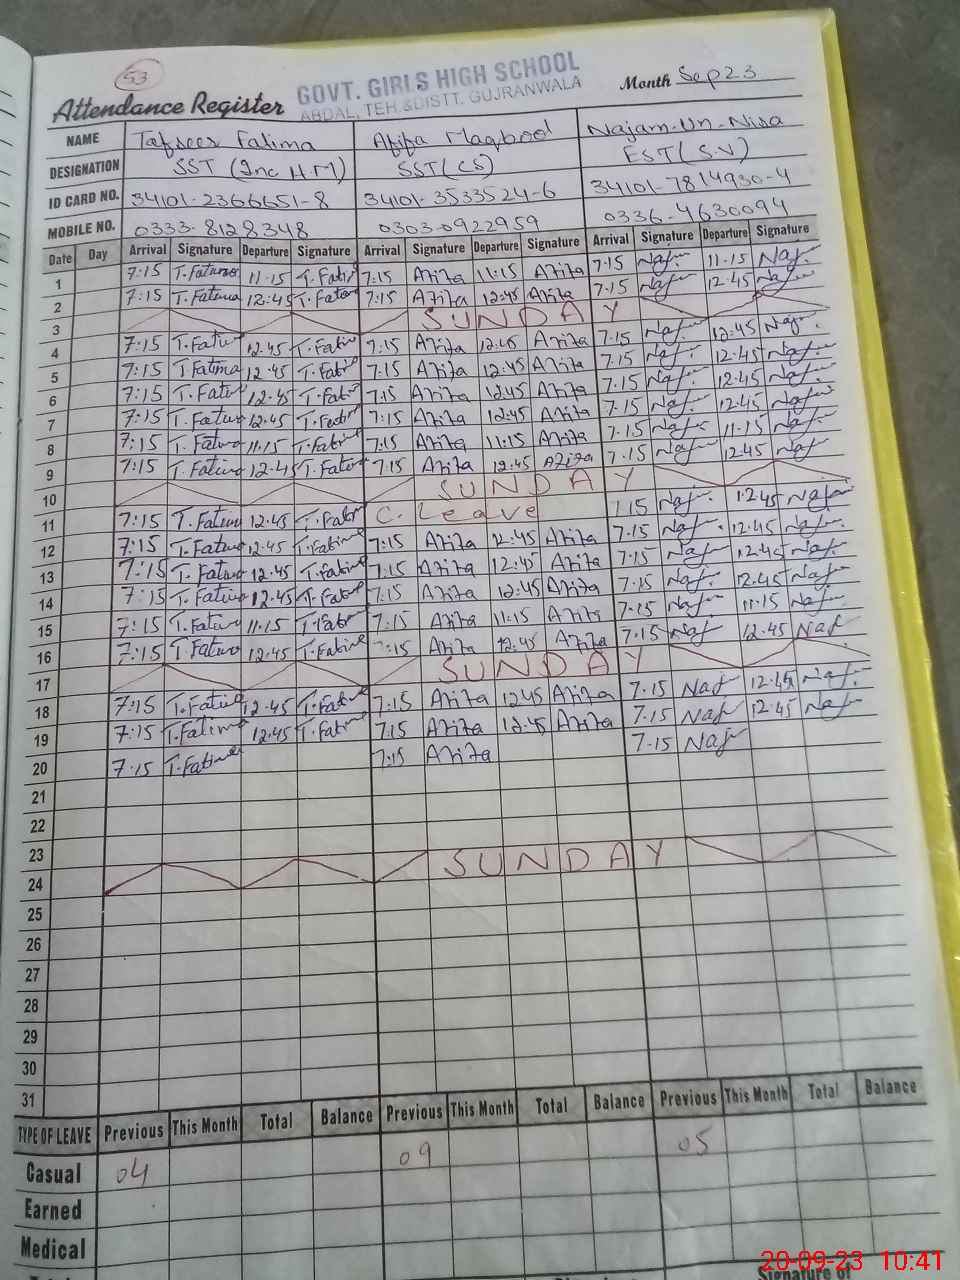 53
GOVT. GIRLS HIGH SCHOOL
ABDAL, TEH.&DISTT. GUJRANWALA
Attendance Register Month Sep 23
NAME Tafseer Fatima Afifa Maqbool Najam-Un-Nisa
DESIGNATION SST (Inc H.M) SST(CS) EST(S.V)
ID CARD NO. 34101-2366651-8 34101-3533524-6 34101-7814930-4
MOBILE NO. 0333-8128348 0303-0922959 0336-4630094
Date Day Arrival Signature Departure Signature Arrival Signature Departure Signature Arrival Signature Departure Signature
1 7:15 T.Fatima 11:15 T.Fati 7:15 Afifa 11:15 Afifa 7:15 Naj 11:15 Naj
2 7:15 T.Fatima 12:45 T.Fati 7:15 Afifa 12:45 Afifa 7:15 Naj 12:45 Naj
3 SUNDAY
4 7:15 T.Fati 12:45 T.Fati 7:15 Afifa 12:45 Afifa 7:15 Naj 12:45 Naj
5 7:15 T.Fatima 12:45 T.Fati 7:15 Afifa 12:45 Afifa 7:15 Naj 12:45 Naj
6 7:15 T.Fati 12:45 T.Fati 7:15 Afifa 12:45 Afifa 7:15 Naj 12:45 Naj
7 7:15 T.Fati 12:45 T.Fati 7:15 Afifa 12:45 Afifa 7:15 Naj 12:45 Naj
8 7:15 T.Fati 11:15 T.Fatima 7:15 Afifa 11:15 Afifa 7:15 Naj 11:15 Naj
9 7:15 T.Fatima 12:45 T.Fati 7:15 Afifa 12:45 Afifa 7:15 Naj 12:45 Naj
10 SUNDAY
11 7:15 T.Fatima 12:45 T.Fati C. Leave 7:15 Naj 12:45 Naj
12 7:15 T.Fati 12:45 T.Fatima 7:15 Afifa 12:45 Afifa 7:15 Naj 12:45 Naj
13 7:15 T.Fati 12:45 T.Fatima 7:15 Afifa 12:45 Afifa 7:15 Naj 12:45 Naj
14 7:15 T.Fatima 12:45 T.Fatima 7:15 Afifa 12:45 Afifa 7:15 Naj 12:45 Naj
15 7:15 T.Fati 11:15 T.Fati 7:15 Afifa 11:15 Afifa 7:15 Naj 11:15 Naj
16 7:15 T.Fati 12:45 T.Fatima 7:15 Afifa 12:45 Afifa 7:15 Naj 12:45 Naj
17 SUNDAY
18 7:15 T.Fati 12:45 T.Fati 7:15 Afifa 12:45 Afifa 7:15 Naj 12:45 Naj
19 7:15 T.Fatima 12:45 T.Fati 7:15 Afifa 12:45 Afifa 7:15 Naj 12:45 Naj
20 7:15 T.Fatima 7:15 Afifa 7:15 Naj
21
22
23
24 SUNDAY
25
26
27
28
29
30
31
TYPE OF LEAVE Previous This Month Total Balance Previous This Month Total Balance Previous This Month Total Balance
Casual 04 09 05
Earned
Medical
Signature of
20-09-23 10:41